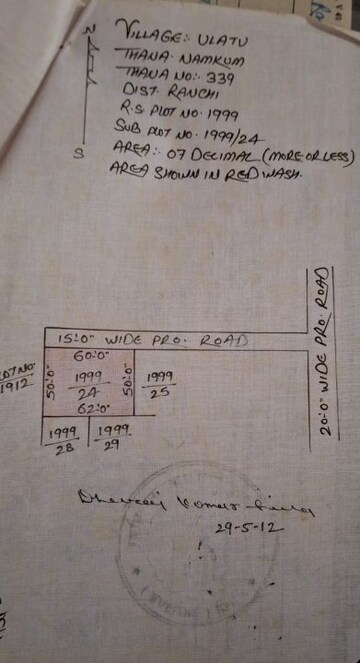 VILLAGE:- ULATU
THANA- NAMKUM
THANA NO:- 339
DIST. RANCHI
R.S PLOT NO- 1999
SUB PLOT NO- 1999/24
AREA:- 07 DECIMAL (MORE OR LESS)
AREA SHOWN IN RED WASH.
S
15'-0" WIDE PRO. ROAD
20'-0" WIDE PRO. ROAD
60'-0"
PLOT NO
1912
50'-0"
1999
24
50'-0"
1999
25
62'-0"
1999
28
1999
29
29-5-12